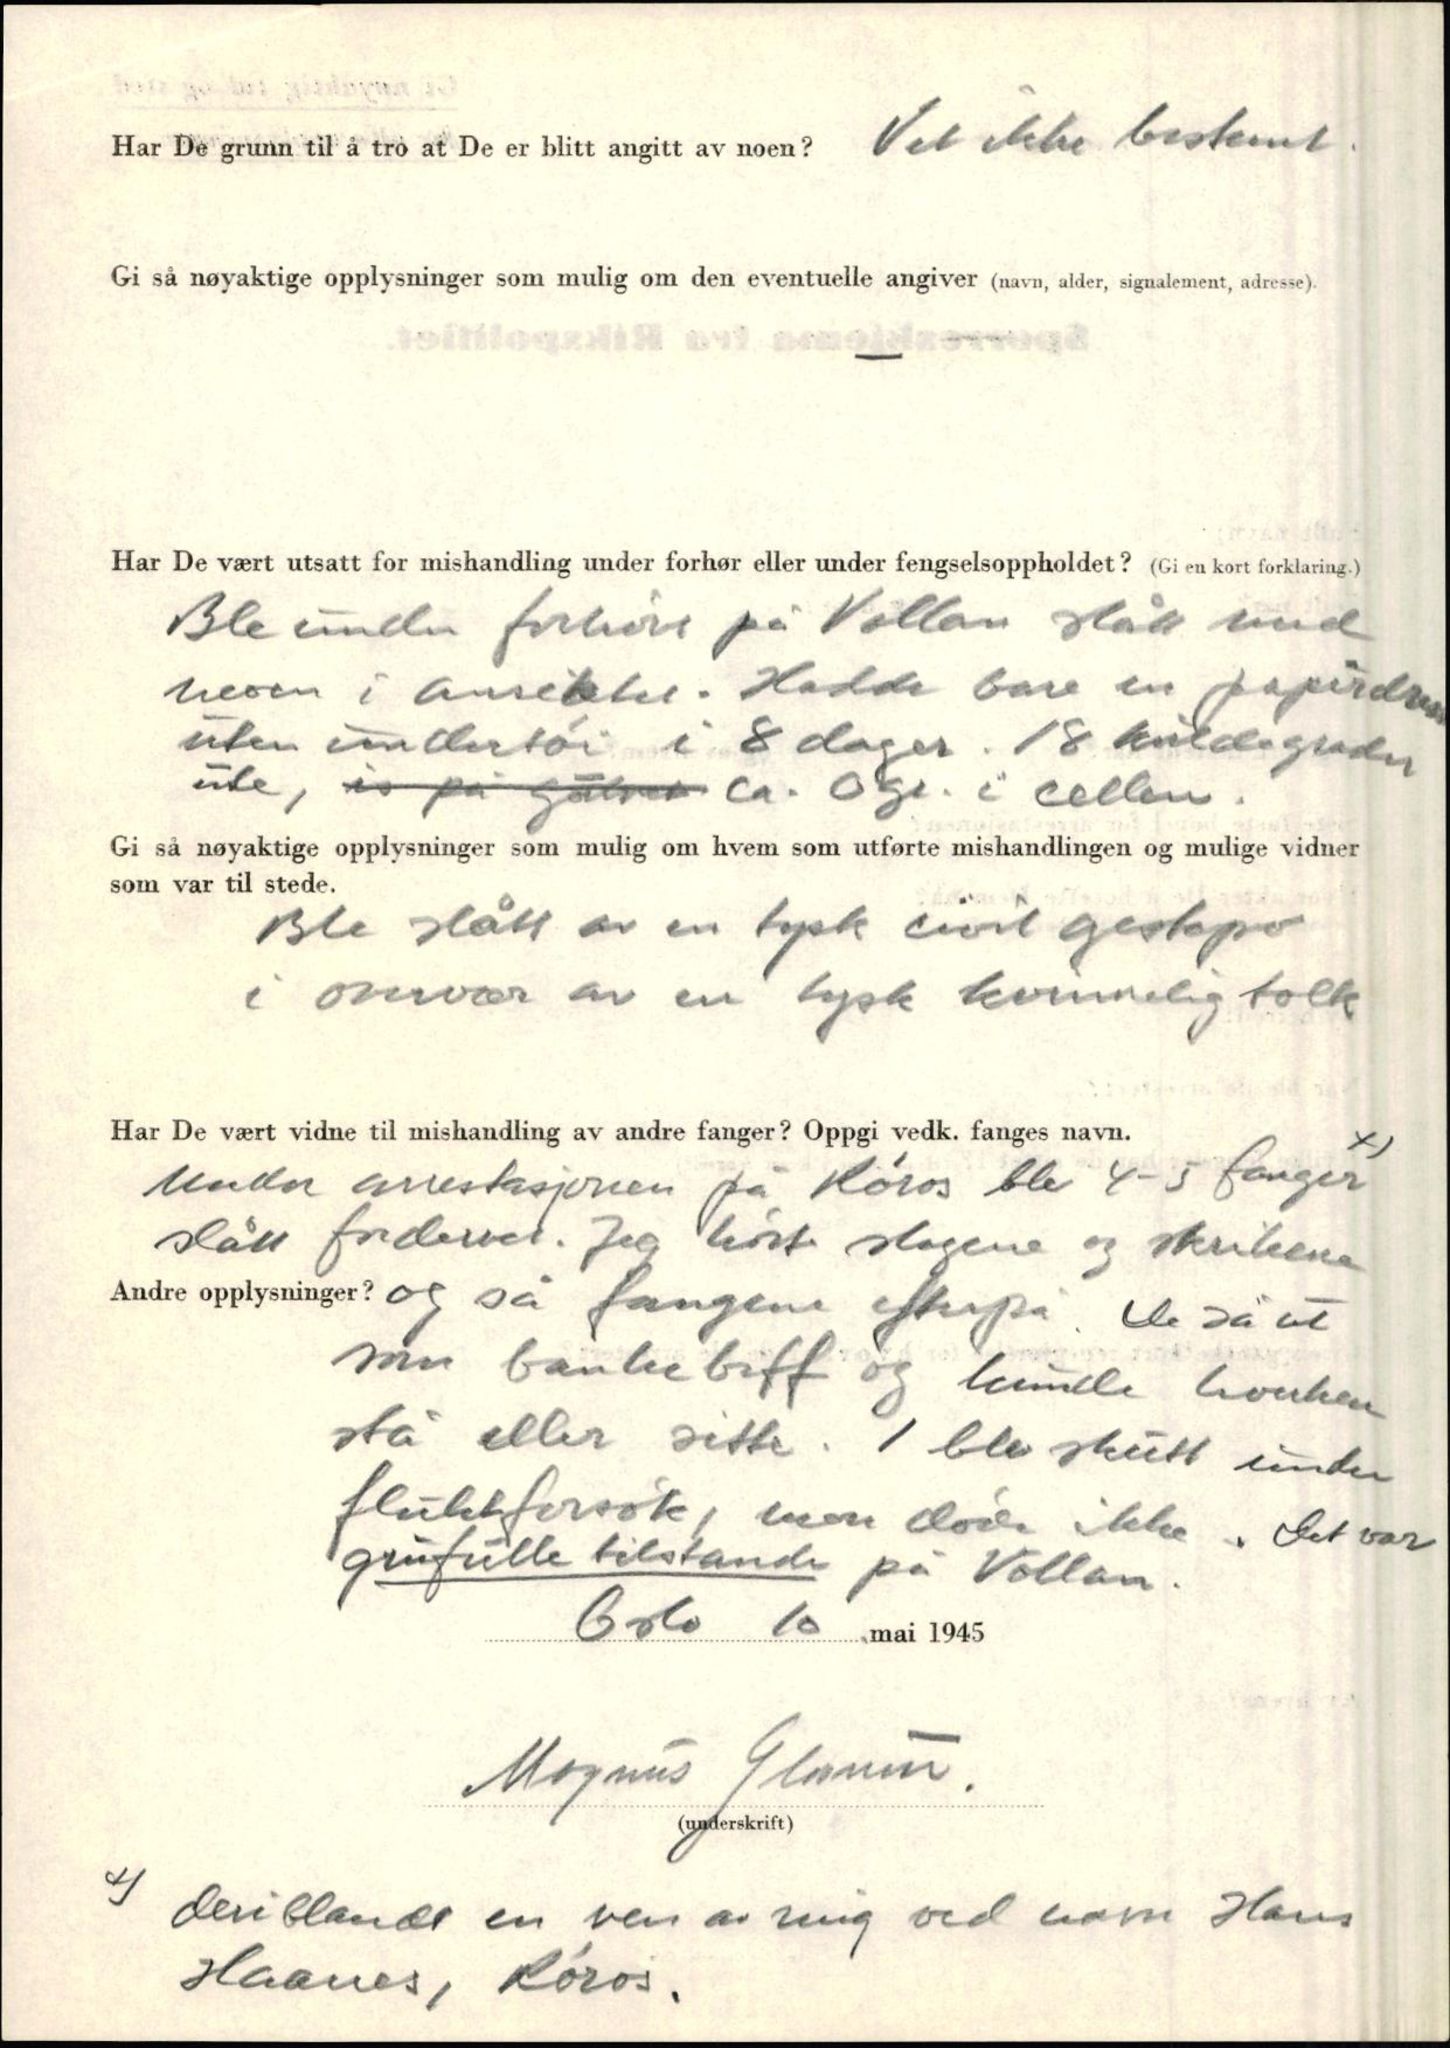 Har De grunn til å tro at De er blitt angitt av noen? Vet ikke bestemt.
Gi så nøyaktige opplysninger som mulig om den eventuelle angiver (navn, alder, signalement, adresse).
—
Har De vært utsatt for mishandling under forhør eller under fengselsoppholdet? (Gi en kort forklaring.)
Ble under forhöre på Vollan slått med
neven i ansiktet. Hadde bare en papirdress
uten undertöi i 8 dager. 18 kuldegrader
ute, is på gulvet ca. 0 gr. i cellen.
Gi så nøyaktige opplysninger som mulig om hvem som utførte mishandlingen og mulige vidner
som var til stede.
Ble slått av en tysk civil gestapo
i overvær av en tysk kvinnelig tolk
Har De vært vidne til mishandling av andre fanger? Oppgi vedk. fanges navn.
Under arrestasjonen på Röros ble 4-5 fanger x)
slått fordervet. Jeg hörte slagene og skrikene
Andre opplysninger? og så fangene efterpå. De så ut
som bankebiff og kunde hverken
stå eller sitte. 1 ble skutt under
fluktforsök, men döde ikke. Det var
grufulle tilstande på Vollan.
Oslo 10 mai 1945
Magnus
(underskrift)
x) deriblandt en ven av mig ved navn Hans
Haanes, Röros.